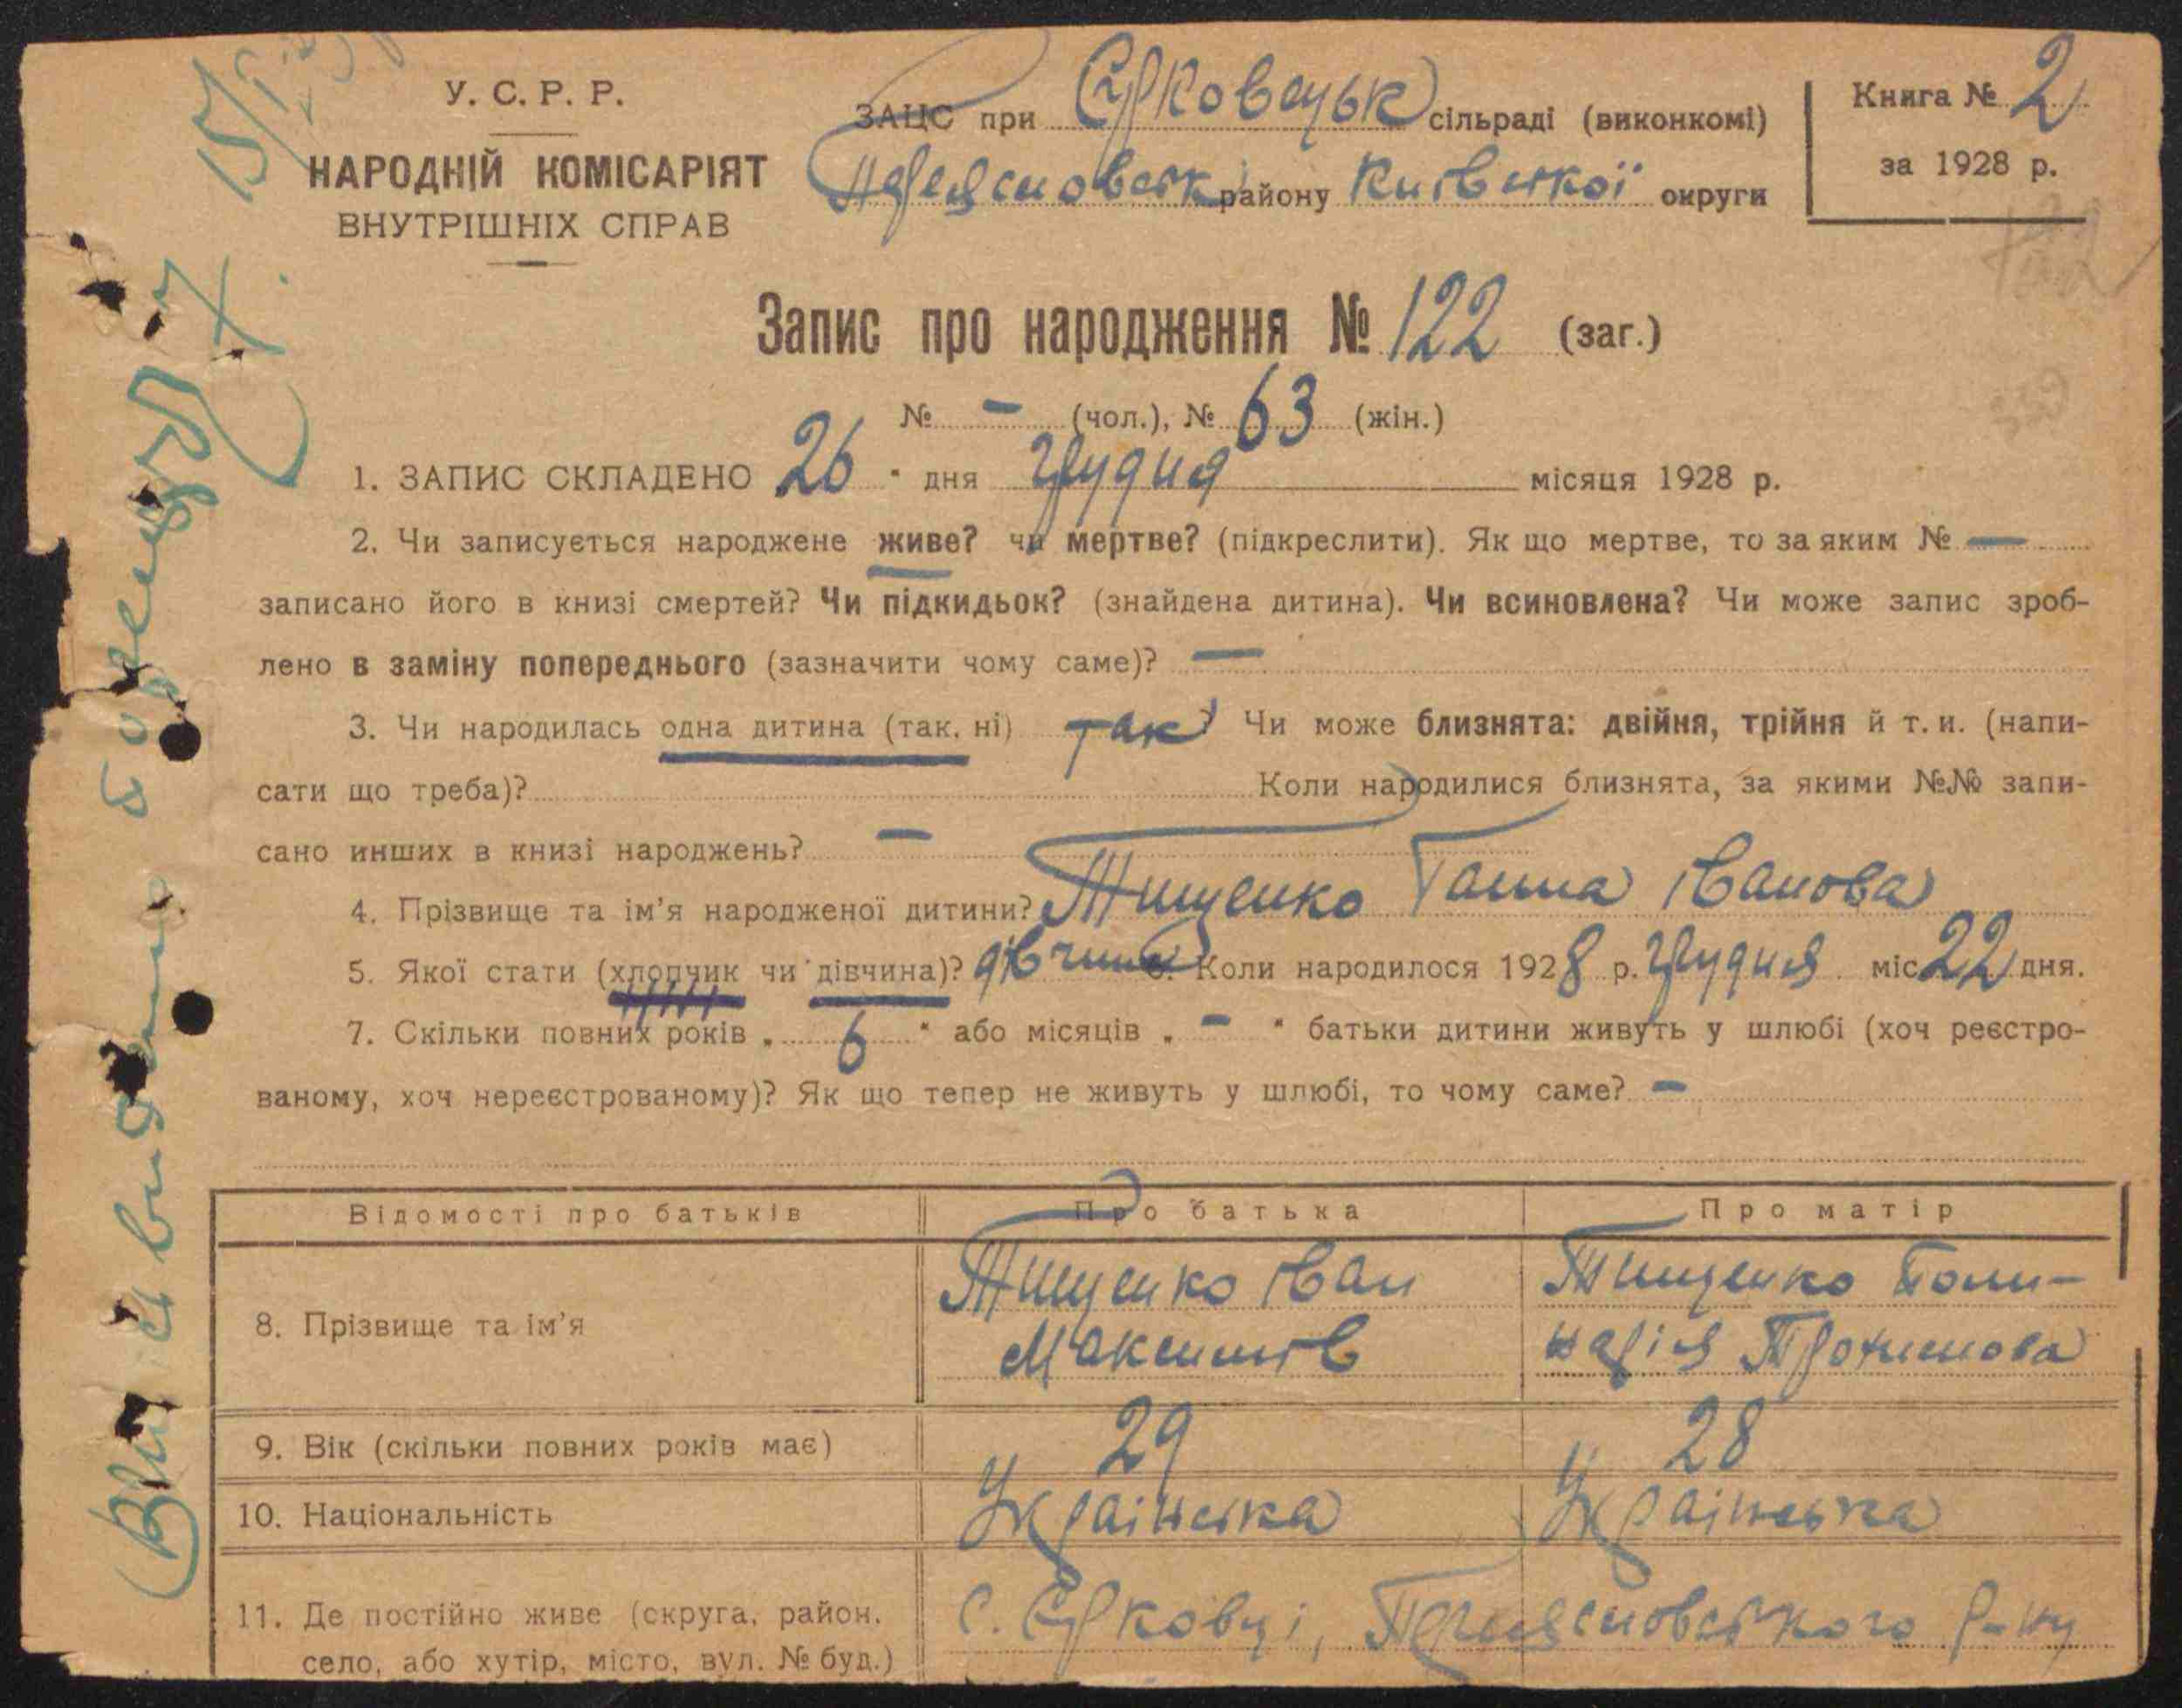 У. С. Р. Р.
НАРОДНІЙ КОМІСАРІЯТ
ВНУТРІШНІХ СПРАВ
ЗАЦС при Єрковецьк сільраді (виконкомі)
району Київської округи
Книга № 2
за 1928 р.
Запис про народження № 122 (заг.)
№ — (чол.), № 63 (жін.)
1. ЗАПИС СКЛАДЕНО 26 " дня грудня місяця 1928 р.
2. Чи записується народжене живе? чи мертве? (підкреслити). Як що мертве, то за яким № —
записано його в книзі смертей? Чи підкидьок? (знайдена дитина). Чи всиновлена? Чи може запис зроб-
лено в заміну попереднього (зазначити чому саме)? —
3. Чи народилась одна дитина (так, ні) так Чи може близнята: двійня, трійня й т. и. (напи-
сати що треба)? Коли народилися близнята, за якими №№ запи-
сано инших в книзі народжень? —
4. Прізвище та ім'я народженої дитини? Тищенко Ганна Іванова
5. Якої стати (хлопчик чи дівчина)? дівчина 6. Коли народилося 1928 р. грудня міс 22 дня.
7. Скільки повних років „ 6 " або місяців „ — " батьки дитини живуть у шлюбі (хоч реєстро-
ваному, хоч нереєстрованому)? Як що тепер не живуть у шлюбі, то чому саме? —
Відомості про батьків
Про батька
Про матір
8. Прізвище та ім'я
Тищенко Іван
Максимів
Тищенко
Трохимова
9. Вік (скільки повних років має)
29
28
10. Національність
Українська
Українська
11. Де постійно живе (округа, район,
село, або хутір, місто, вул. № буд.)
с. Єрковці, р-ну